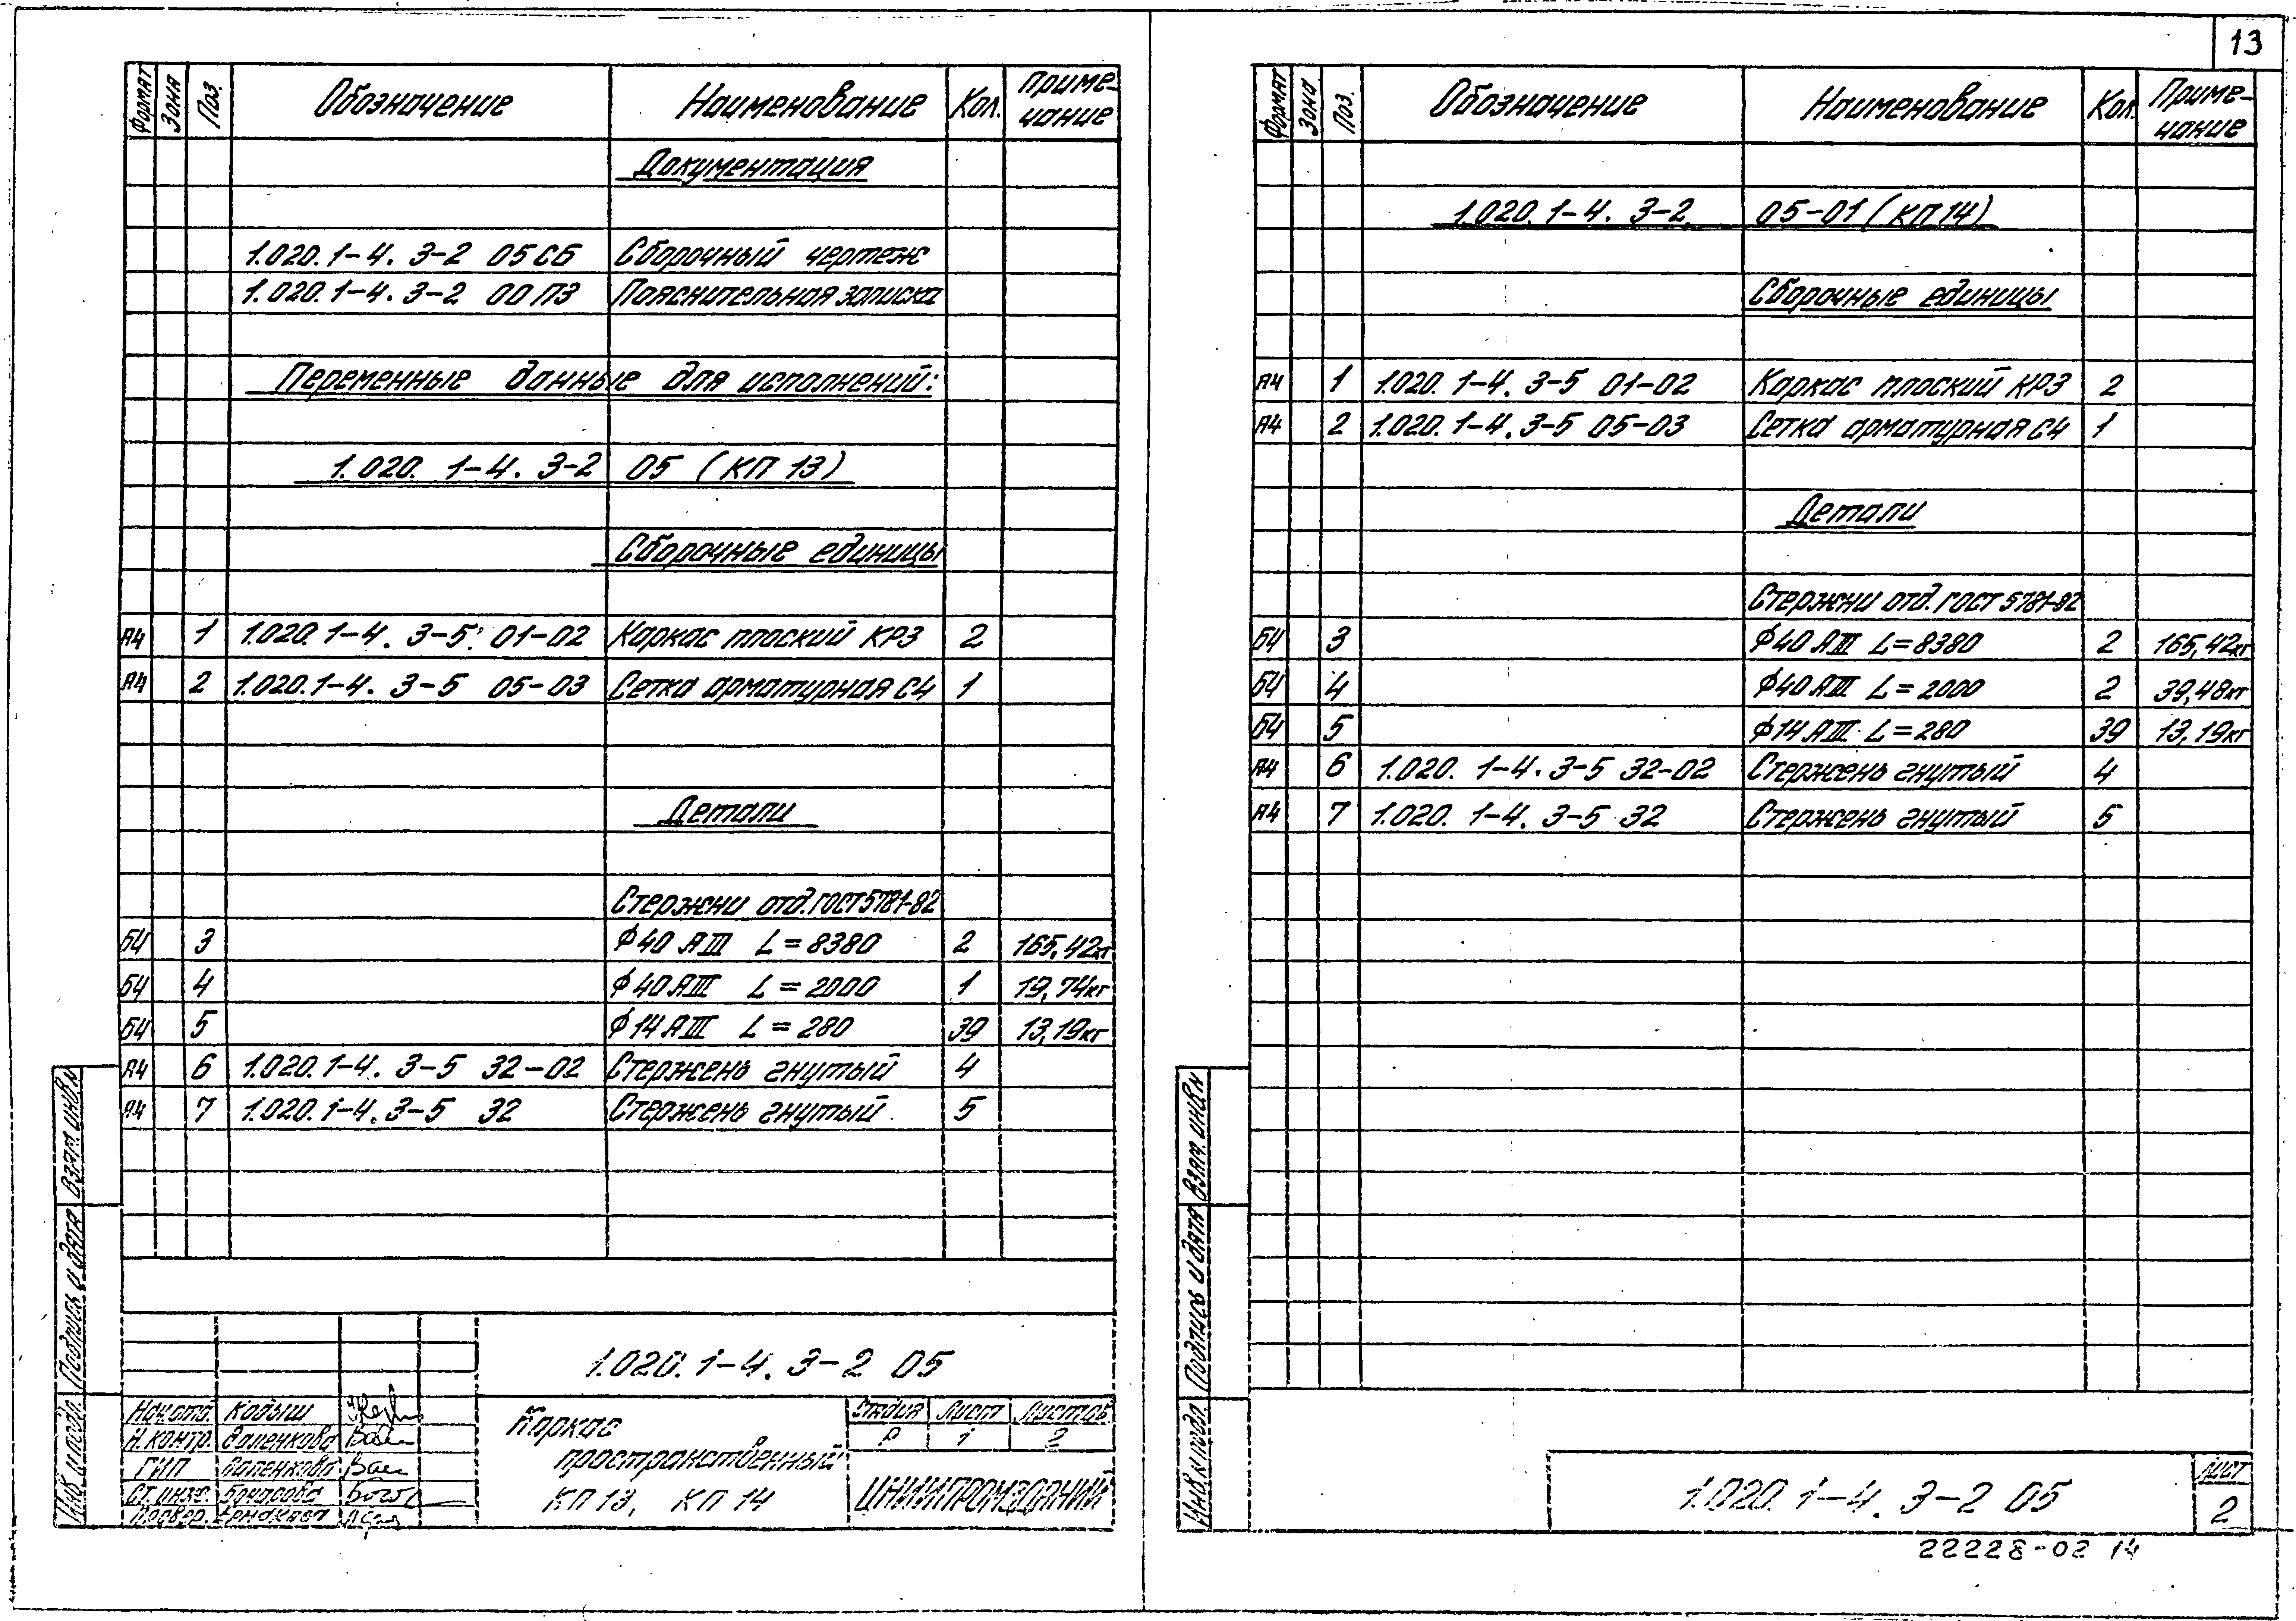 13
Формат Зона Поз. Обозначение Наименование Кол. Приме-чание
Документация
1.020.1-4. 3-2 05СБ Сборочный чертеж
1.020.1-4. 3-2 00ПЗ Пояснительная записка
Переменные данные для исполнений:
1.020. 1-4. 3-2 05 (КП 13)
Сборочные единицы
А4 1 1.020.1-4. 3-5. 01-02 Каркас плоский КР3 2
А4 2 1.020.1-4. 3-5 05-03 Сетка арматурная С4 1
Детали
Стержни отд. ГОСТ 5781-82
Б4 3 ϕ40 АIII L=8380 2 165,42кг
Б4 4 ϕ40 АIII L=2000 1 19,74кг
Б4 5 ϕ14 АIII L=280 39 13,19кг
А4 6 1.020.1-4. 3-5 32-02 Стержень гнутый 4
А4 7 1.020.1-4. 3-5 32 Стержень гнутый 5
Взам. инв.№
Подпись и дата
Инв.№ подл.
1.020.1-4. 3-2 05
Нач.отд. Кодыш
Н.контр. Валенкова
ГИП Валенкова
Ст.инж.
Провер. Ермакова
Каркас
пространственный
КП 13, КП 14
Стадия Лист Листов
Р 1 2
ЦНИИПРОМЗДАНИЙ
Формат Зона Поз. Обозначение Наименование Кол. Приме-чание
1.020. 1-4. 3-2 05-01 (КП 14)
Сборочные единицы
А4 1 1.020. 1-4. 3-5 01-02 Каркас плоский КР3 2
А4 2 1.020. 1-4. 3-5 05-03 Сетка арматурная С4 1
Детали
Стержни отд. ГОСТ 5781-82
Б4 3 ϕ40 АIII L=8380 2 165,42кг
Б4 4 ϕ40 АIII L=2000 2 39,48кг
Б4 5 ϕ14 АIII L=280 39 13,19кг
А4 6 1.020. 1-4. 3-5 32-02 Стержень гнутый 4
А4 7 1.020. 1-4. 3-5 32 Стержень гнутый 5
Взам. инв.№
Подпись и дата
Инв.№ подл.
1.020. 1-4. 3-2 05
Лист
2
22228-02 14